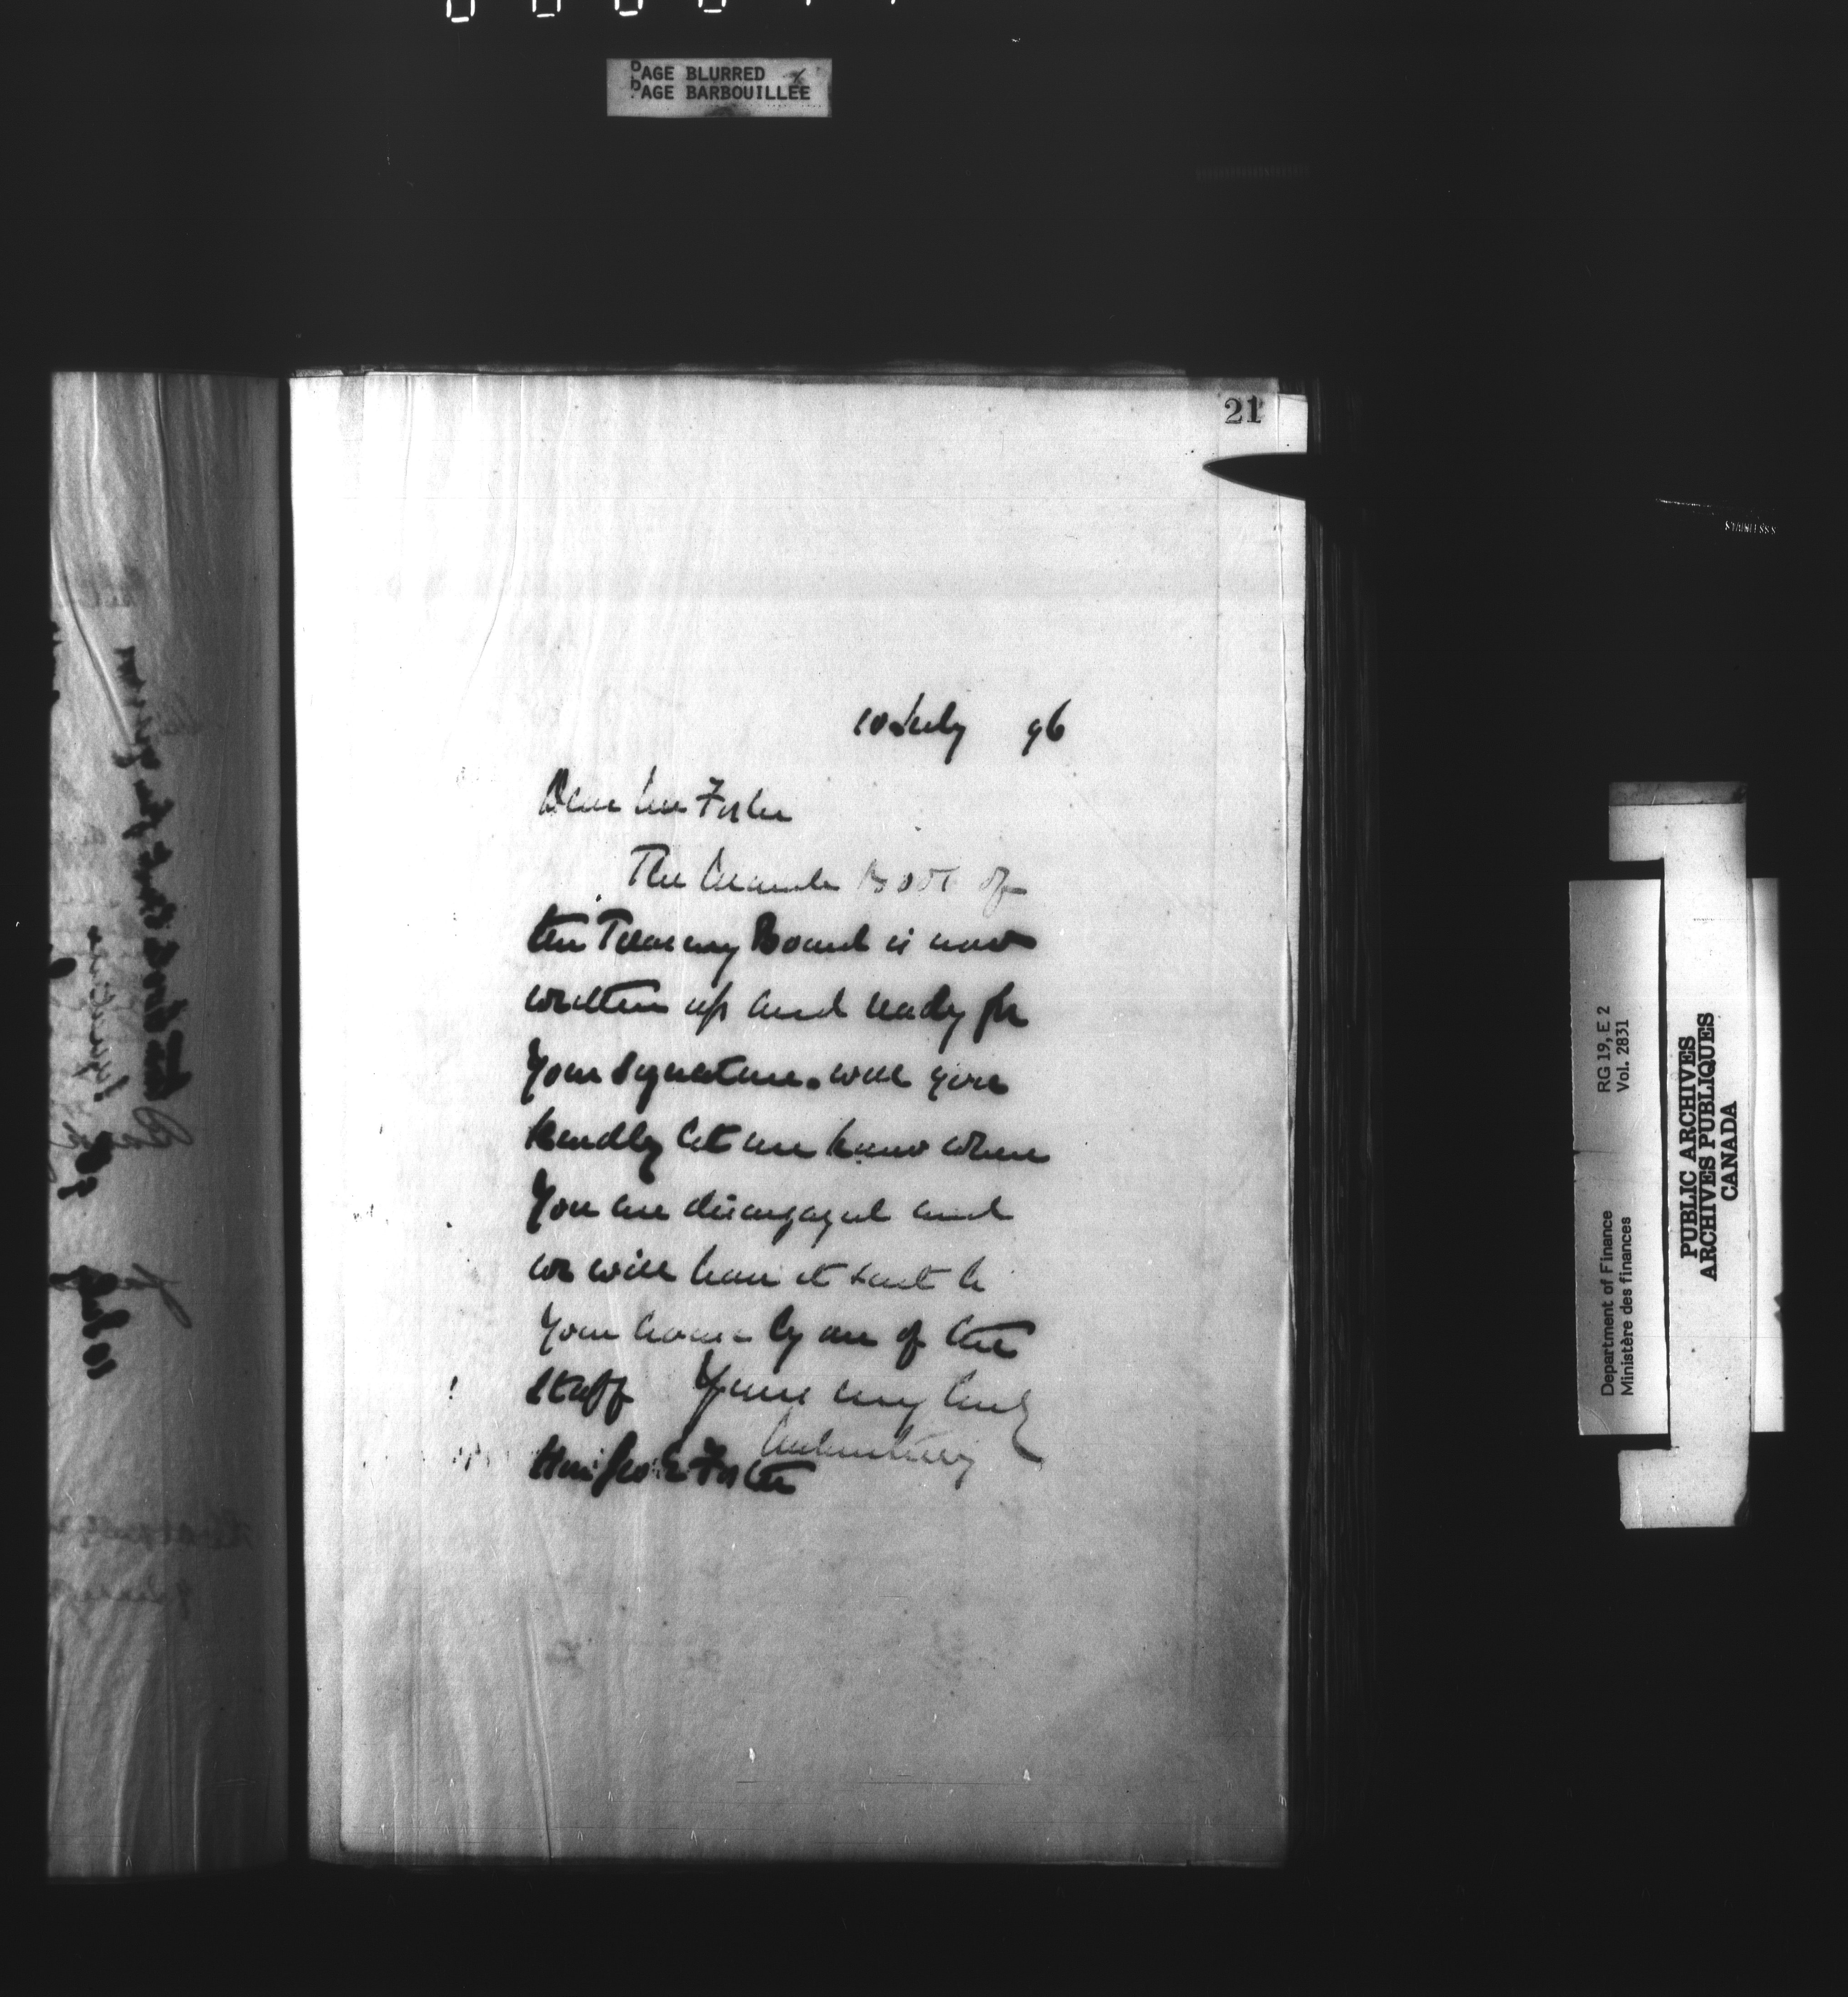 PAGE BLURRED
PAGE BARBOUILLEE
21
10 July 96
Dear Mr Foster
The Minute Book of
the Treasury Board is now
written up and ready for
your signature. Will you
kindly let me know when
you are disengaged and
we will have it sent to
your house by one of the
staff Yours very truly
Hon Geo. E. Foster
STAINLESS
Department of Finance RG 19, E 2
Ministère des finances Vol. 2831
PUBLIC ARCHIVES
ARCHIVES PUBLIQUES
CANADA